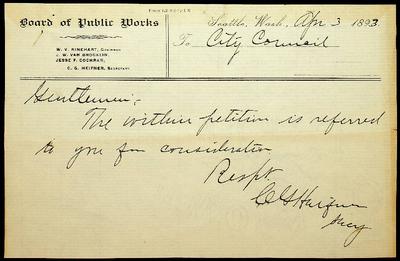 Board of Public Works
W. V. RINEHART, CHAIRMAN
J. W. VAN BROCKLIN,
JESSE F. COCHRAN,
C. G. HEIFNER, SECRETARY
Seattle, Wash. Apr 3 1893
To City Council
Gentlemen;-
The within petition is referred
to you for consideration
Respt.
C G Heifner
Secy